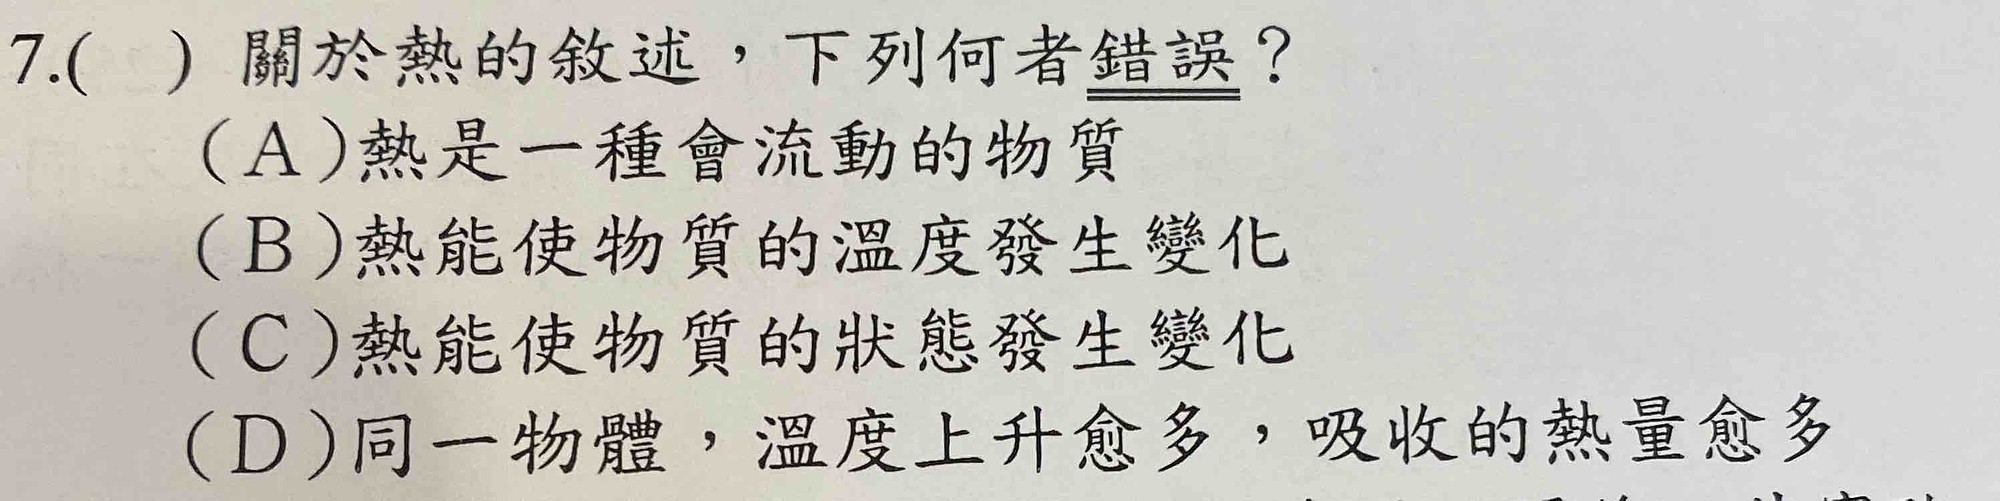 7.(　) 關於熱的敘述，下列何者錯誤？
(A)熱是一種會流動的物質
(B)熱能使物質的溫度發生變化
(C)熱能使物質的狀態發生變化
(D)同一物體，溫度上升愈多，吸收的熱量愈多